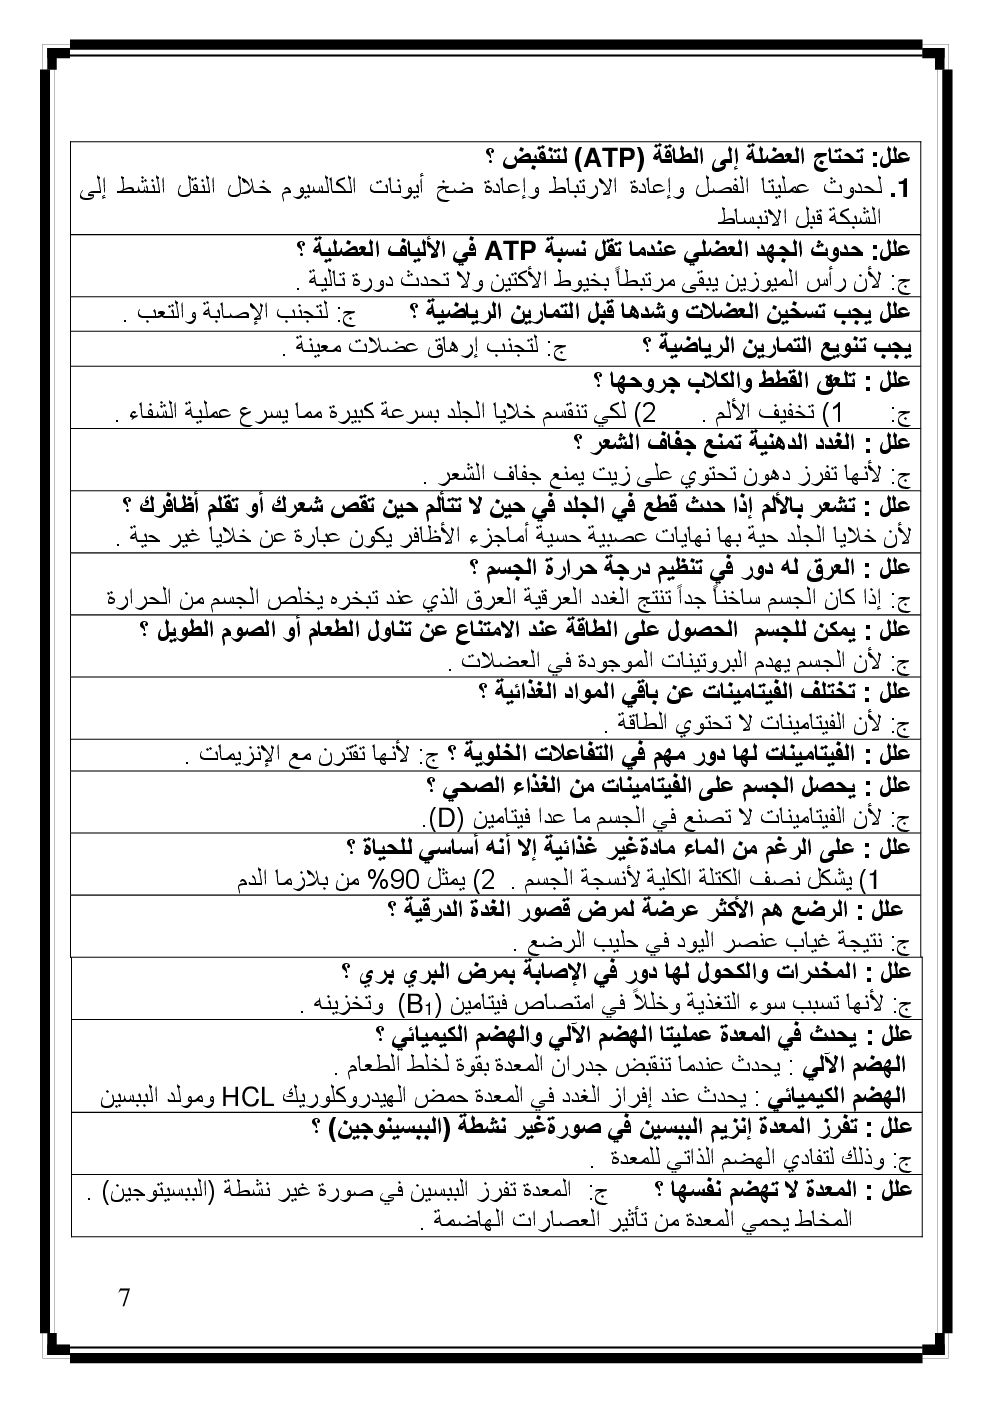 علل: تحتاج العضلة إلى الطاقة (ATP) لتنقبض ؟
1. لحدوث عمليتا الفصل وإعادة الارتباط وإعادة ضخ أيونات الكالسيوم خلال النقل النشط إلى
الشبكة قبل الانبساط
علل: حدوث الجهد العضلي عندما تقل نسبة ATP في الألياف العضلية ؟
ج: لأن رأس الميوزين يبقى مرتبطاً بخيوط الأكتين ولا تحدث دورة تالية .
علل يجب تسخين العضلات وشدها قبل التمارين الرياضية ؟ ج: لتجنب الإصابة والتعب .
يجب تنويع التمارين الرياضية ؟ ج: لتجنب إرهاق عضلات معينة .
علل : تلعق القطط والكلاب جروحها ؟
ج: 1) تخفيف الألم . 2) لكي تنقسم خلايا الجلد بسرعة كبيرة مما يسرع عملية الشفاء .
علل : الغدد الدهنية تمنع جفاف الشعر ؟
ج: لأنها تفرز دهون تحتوي على زيت يمنع جفاف الشعر .
علل : تشعر بالألم إذا حدث قطع في الجلد في حين لا تتألم حين تقص شعرك أو تقلم أظافرك ؟
لأن خلايا الجلد حية بها نهايات عصبية حسية أماجزء الأظافر يكون عبارة عن خلايا غير حية .
علل : العرق له دور في تنظيم درجة حرارة الجسم ؟
ج: إذا كان الجسم ساخناً جداً تنتج الغدد العرقية العرق الذي عند تبخره يخلص الجسم من الحرارة
علل : يمكن للجسم الحصول على الطاقة عند الامتناع عن تناول الطعام أو الصوم الطويل ؟
ج: لأن الجسم يهدم البروتينات الموجودة في العضلات .
علل : تختلف الفيتامينات عن باقي المواد الغذائية ؟
ج: لأن الفيتامينات لا تحتوي الطاقة .
علل : الفيتامينات لها دور مهم في التفاعلات الخلوية ؟ ج: لأنها تقترن مع الإنزيمات .
علل : يحصل الجسم على الفيتامينات من الغذاء الصحي ؟
ج: لأن الفيتامينات لا تصنع في الجسم ما عدا فيتامين (D).
علل : على الرغم من الماء مادةغير غذائية إلا أنه أساسي للحياة ؟
1) يشكل نصف الكتلة الكلية لأنسجة الجسم . 2) يمثل 90% من بلازما الدم
علل : الرضع هم الأكثر عرضة لمرض قصور الغدة الدرقية ؟
ج: نتيجة غياب عنصر اليود في حليب الرضع .
علل : المخدرات والكحول لها دور في الإصابة بمرض البري بري ؟
ج: لأنها تسبب سوء التغذية وخللاً في امتصاص فيتامين (B1) وتخزينه .
علل : يحدث في المعدة عمليتا الهضم الآلي والهضم الكيميائي ؟
الهضم الآلي : يحدث عندما تنقبض جدران المعدة بقوة لخلط الطعام .
الهضم الكيميائي : يحدث عند إفراز الغدد في المعدة حمض الهيدروكلوريك HCL ومولد الببسين
علل : تفرز المعدة إنزيم الببسين في صورةغير نشطة (الببسينوجين) ؟
ج: وذلك لتفادي الهضم الذاتي للمعدة .
علل : المعدة لا تهضم نفسها ؟ ج: المعدة تفرز الببسين في صورة غير نشطة (الببسيتوجين) .
المخاط يحمي المعدة من تأثير العصارات الهاضمة .
7